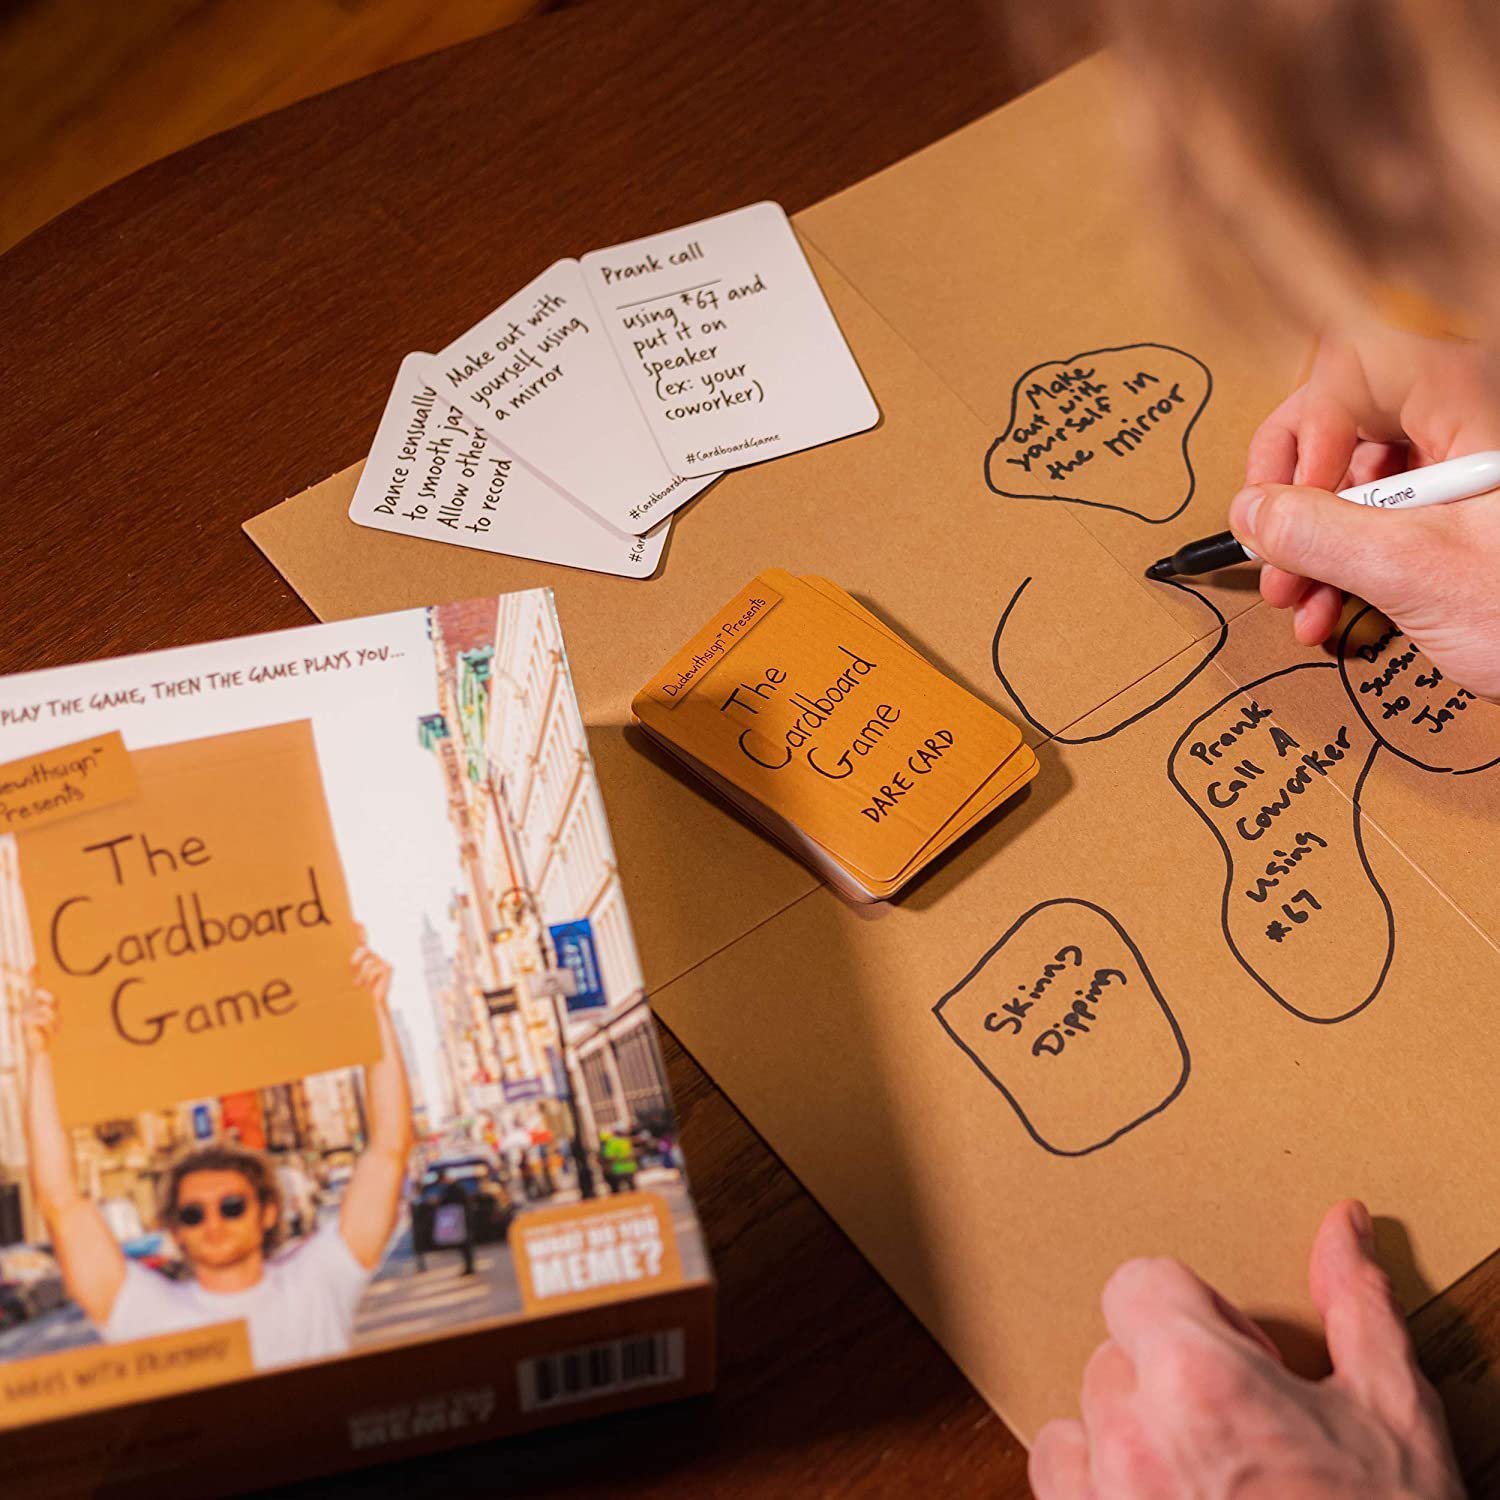 Prank call
using *67 and
put it on
speaker
(ex: your
coworker)
#CardboardGame
Make out with
yourself using
a mirror
#Cardboard
Dance sensually
to smooth jaz
Allow other
to record
#Car
Make
out with
yourself in
the mirror
Game
Dan
sensu
to s
Jazz
Prank
Call A
Coworker
using
*67
Skinny
Dipping
Dudewithsign™ Presents
The
Cardboard
Game
DARE CARD
PLAY THE GAME, THEN THE GAME PLAYS YOU...
dewithsign™
Presents
The
Cardboard
Game
WHAT DO YOU
MEME?
WHAT DO YOU
MEME?